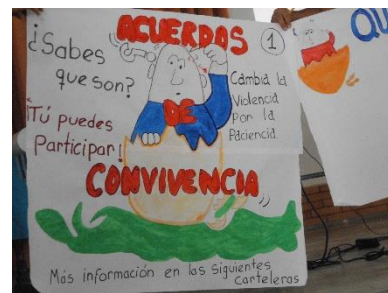 ACUERDAS
1
¿Sabes
que son?
DE
Cambia la
Violencia
Por la
Paciencia.
¡TÚ puedes
Participar!
CONVIVENCIA
Más información en las siguientes
carteleras
QU